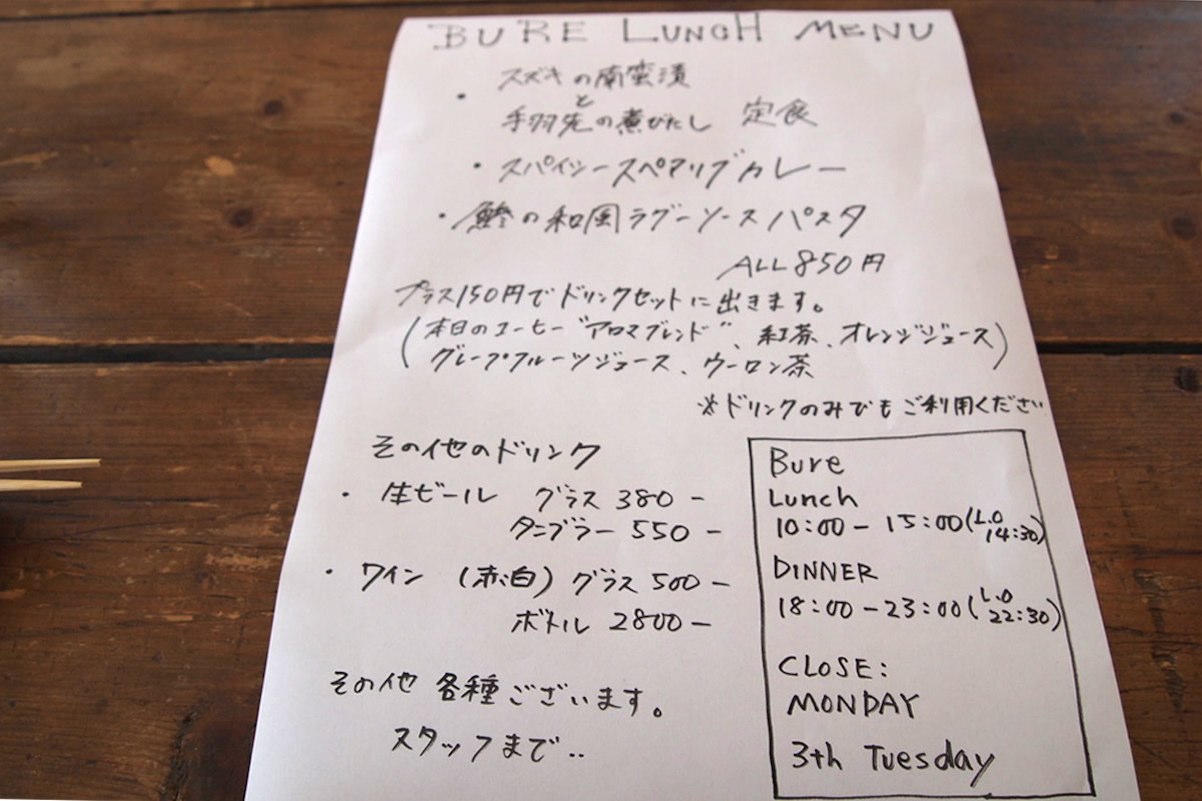 BURE LUNCH MENU
・スズキの南蛮漬
と
手羽先の煮びたし 定食
・スパイシースペアリブカレー
・鯵の和風ラグーソースパスタ
ALL 850円
プラス150円でドリンクセットに出きます。
(本日のコーヒー"アロマブレンド"、紅茶、オレンジジュース)
グレープフルーツジュース、ウーロン茶
※ドリンクのみでもご利用ください
その他のドリンク
・生ビール グラス 380-
タンブラー 550-
・ワイン (赤、白) グラス 500-
ボトル 2800-
その他 各種ございます。
スタッフまで‥
Bure
Lunch
10:00-15:00(L.O 14:30)
DINNER
18:00-23:00(L.O 22:30)
CLOSE:
MONDAY
3th Tuesday